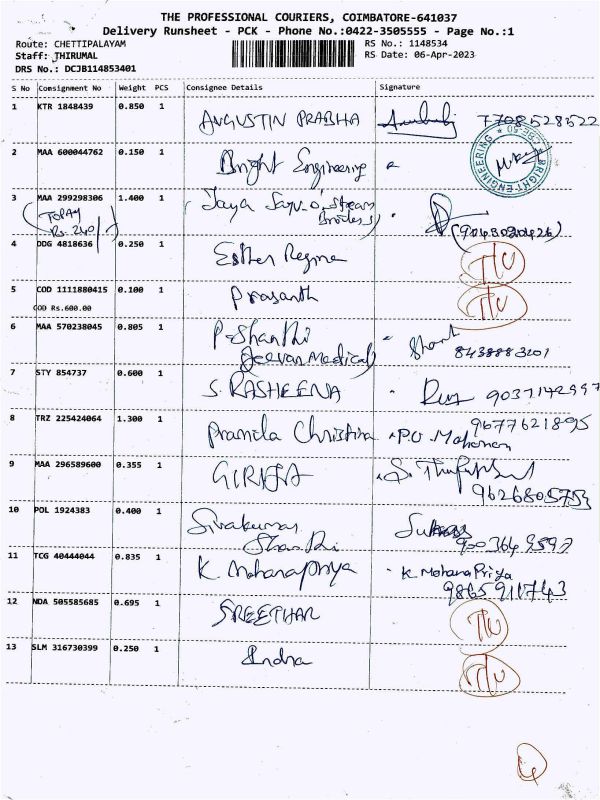 THE PROFESSIONAL COURIERS, COIMBATORE-641037
Delivery Runsheet - PCK - Phone No.:0422-3505555 - Page No.:1
Route: CHETTIPALAYAM RS No.: 1148534
Staff: THIRUMAL RS Date: 06-Apr-2023
DRS No.: DCJB114853401
S No Consignment No Weight PCS Consignee Details Signature
1 KTR 1848439 0.850 1 ANGUSTIN PRABHA 7708528522
2 MAA 600044762 0.150 1 Bright Engineering
BRIGHT ENGINEERING
3 MAA 299298306 1.400 1 Jaya
(TOPAY
Rs. 240/)
4 DDG 4818636 0.250 1 Esther Regina T/U
5 COD 1111880415 0.100 1 Prasanth T/U
COD Rs.600.00
6 MAA 570238045 0.805 1 P. Shanthi
(Jeevan Medical) 8438883201
7 STY 854737 0.600 1 S. RASHEENA 9037142997
8 TRZ 225424064 1.300 1 Pramila Christina 9677621895
9 MAA 296589600 0.355 1 GIRIJA
9626805753
10 POL 1924383 0.400 1 Sivakumar
Shanthi 9003649597
11 TCG 40444044 0.835 1 K. Mohanapriya K. MohanaPriya
9865911743
12 NDA 505585685 0.695 1 SREETHAR T/U
13 SLM 316730399 0.250 1 Indra T/U